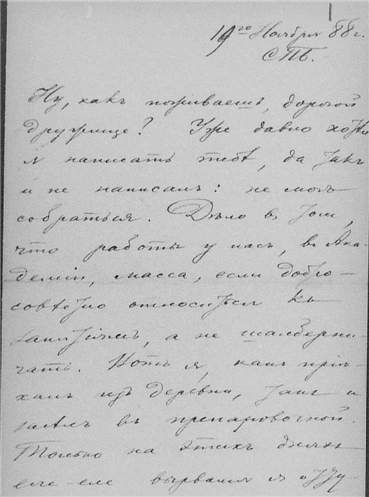 1
19го Ноября 88 г.
СПБ.
Ну, какъ поживаешь, дорогой
дружище? Уже давно хотѣл
я написать тебѣ, да такъ
и не написалъ: не могъ
собраться. Дѣло в том,
что работы у насъ, в Ака-
деміи, масса, если добро-
совѣстно относиться къ
занятіямъ, а не шалберни-
чать. Вотъ я, какъ прiѣ-
халъ изъ деревни, такъ и
засѣлъ въ препаровочной.
Только на этихъ дняхъ
еле-еле вырвался я оттy-